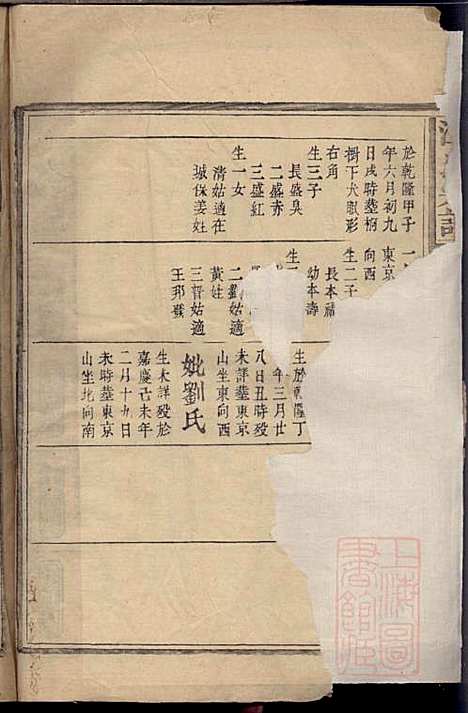 於乾隆甲子
年六月初九
日戌時塟柄
樹下犬眼形
右角
生三子
長盛臭
二盛赤
三盛紅
生一女
清姑適在
城侏姜姓
東京
向西
生二子
長本禧
幼本壽
二劉姑適
黃姓
三晉姑適
王邦發
生於乾隆丁
年三月廿
八日丑時殁
未詳塟東京
山坐東向西
妣劉氏
生未詳殁於
嘉慶己未年
二月十九日
未時塟東京
山坐北向南
上海圖書館藏